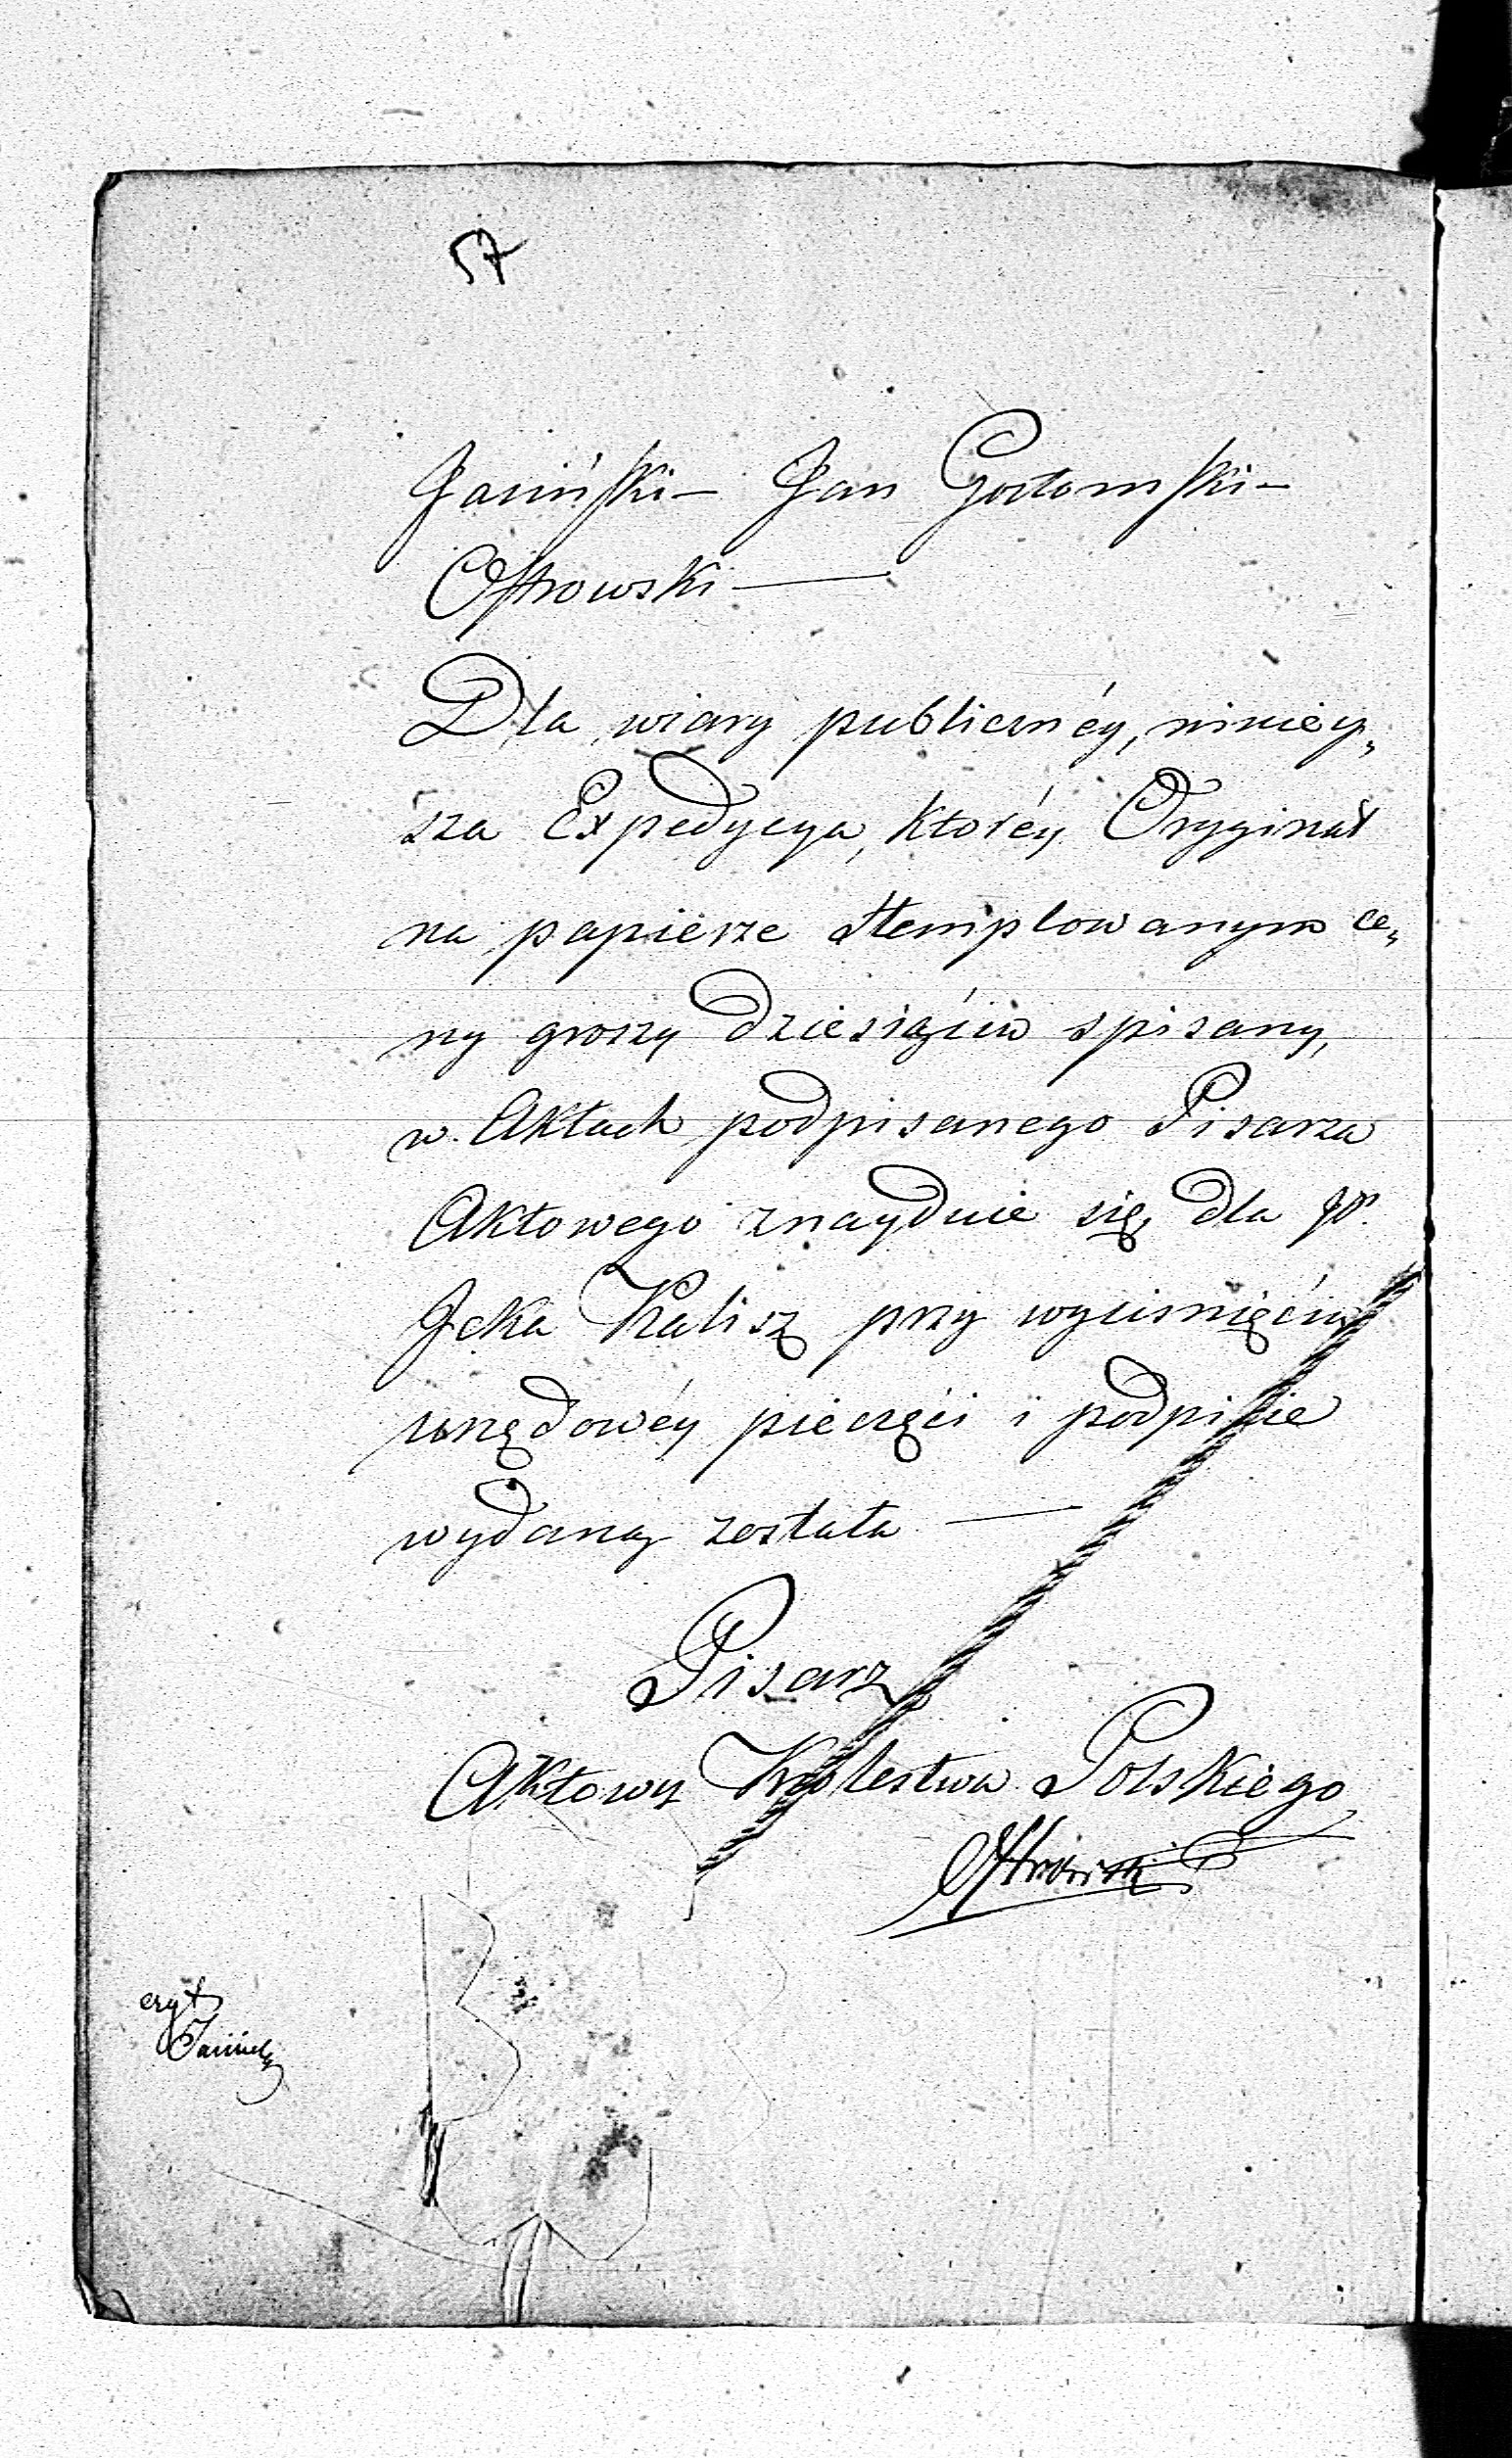 57
Jasiński — Jan Gostomski —
Ostrowski —
Dla wiary publicznéy, ninieỳ„
sza Expedycya, któréy Oryginał
na papierze stemplowanym ce„
ny groszy dziesięciu spisany,
w Aktach podpisanego Pisarza
Aktowego znayduie się, dla P.
Icka Kalisz przy wyciśnięciu
urzędowéy pieczęci i podpisie
wydana została —
Pisarz
Aktowy Królestwa Polskiego
Ostrowski
czyt